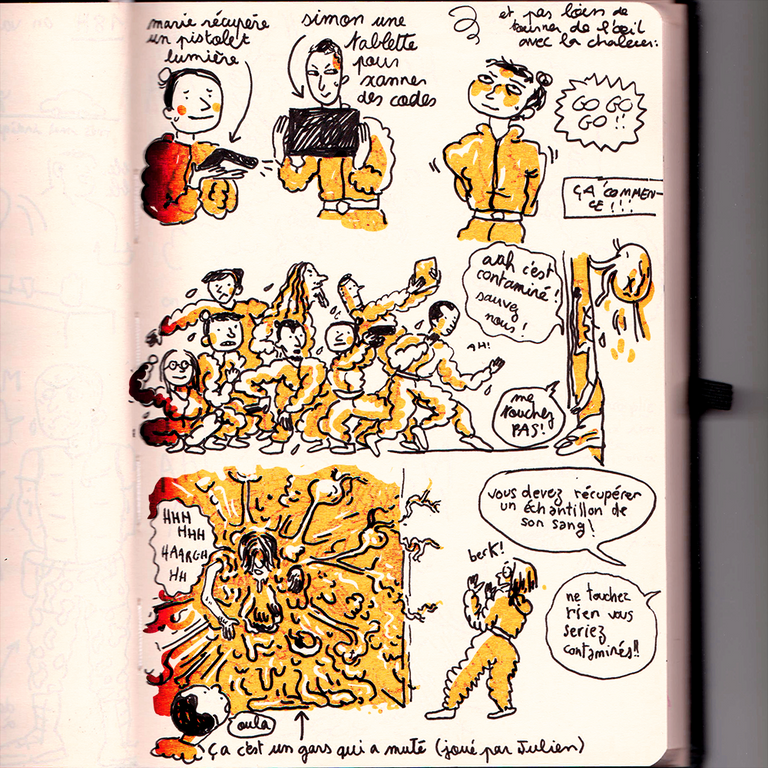 marie récupère
un pistolet
lumière
simon une
tablette
pour
xanner
des codes
et pas loin de
tourner de l'œil
avec la chaleur:
GO GO
GO !!
ÇA COMMEN-
CE !!!
aah c'est
contaminé !
sauvez
nous !
AH!
me
touchez
PAS!
HHH
HHH
HAARGH
HH
vous devez récupérer
un échantillon de
son sang!
berk!
ne touchez
rien vous
seriez
contaminés!!
oula
ça c'est un gars qui a muté (joué par Julien)